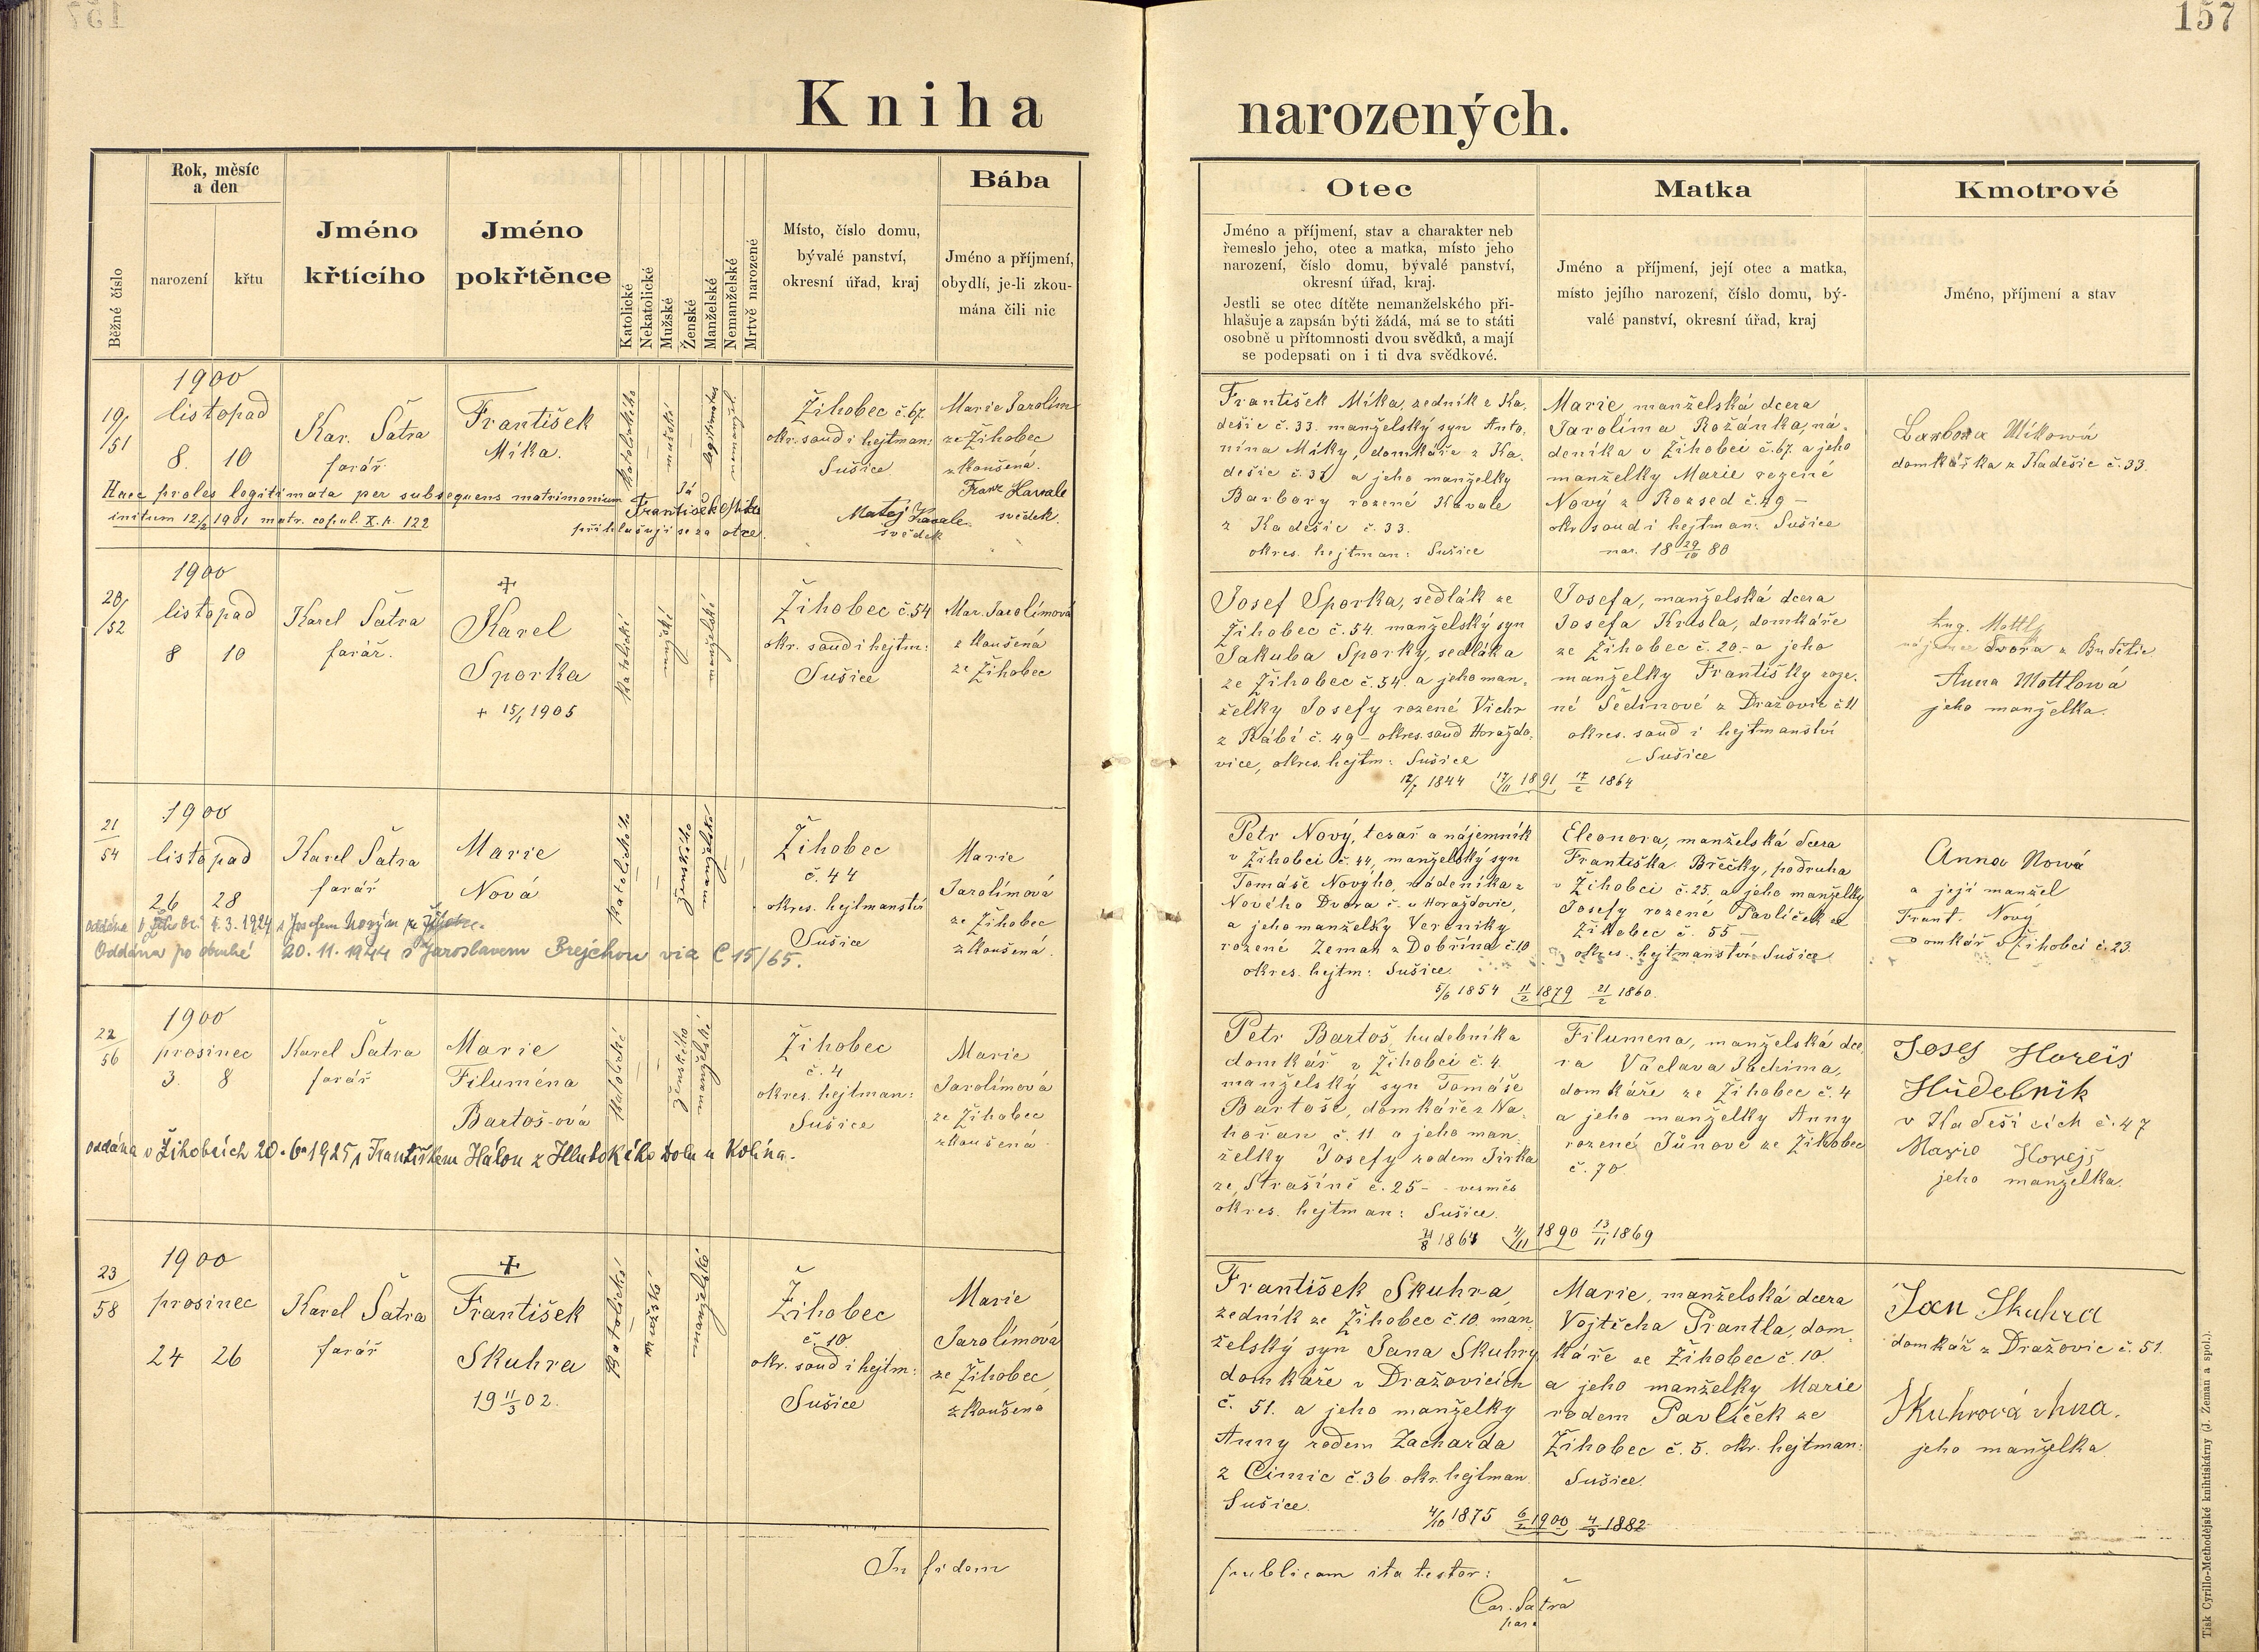 157
Kniha narozených.
Běžné číslo
Rok, měsíc
a den
narození
křtu
Jméno
křtícího
Jméno
pokřtěnce
Katolické
Nekatolické
Mužské
Ženské
Manželské
Nemanželské
Mrtvě narozené
Místo, číslo domu,
bývalé panství,
okresní úřad, kraj
Bába
Jméno a příjmení,
obydlí, je-li zkou-
mána čili nic
Otec
Jméno a příjmení, stav a charakter neb
řemeslo jeho, otec a matka, místo jeho
narození, číslo domu, bývalé panství,
okresní úřad, kraj.
Jestli se otec dítěte nemanželského při-
hlašuje a zapsán býti žádá, má se to státi
osobně u přítomnosti dvou svědků, a mají
se podepsati on i ti dva svědkové.
Matka
Jméno a příjmení, její otec a matka,
místo jejího narození, číslo domu, bý-
valé panství, okresní úřad, kraj
Kmotrové
Jméno, příjmení a stav
19/51
1900
listopad
8. 10
Kar. Šatra
farář.
František
Míka.
katolického
mužském
legitimovaný
Žihobec č. 67.
okr. soud i hejtman:
Sušice
Marie Jarolím
ze Žihobec
zkoušená.
Haec proles legitimata per subsequens matrimonium
initum 12/2 1901 matr. copul. X. p. 122
Já
František Míka
přihlašuji se za otce.
Matěj Kavale
svědek
Franc Kavale
svědek.
František Míka, zedník z Ka-
dešic č. 33. manželský syn Anto-
nína Míky, domkáře z Ka-
dešic č. 33 a jeho manželky
Barbory rozené Kavale
z Kadešic č. 33.
okres. hejtman: Sušice
Marie, manželská dcera
Jarolíma Rožánka, ná-
deníka v Žihobci č. 67. a jeho
manželky Marie rozené
Nový z Rozsed č. 49 –
okr. soud i hejtman: Sušice
nar. 18 29/10 80
Barbora Míková
domkářka z Kadešic č. 33.
20/52
1900
listopad
8 10
Karel Šatra
farář.
+
Karel
Sporka
+ 15/1 1905
katolické
manželském
Žihobec č. 54
okr. soud i hejtm:
Sušice
Mar. Jarolímová
zkoušená
ze Žihobec
Josef Sporka, sedlák ze
Žihobec č. 54. manželský syn
Jakuba Sporky, sedláka
ze Žihobec č. 54. a jeho man-
želky Josefy rozené Vichr
z Rábí č. 49 – okres. soud Horažďo-
vice, okres. hejtm: Sušice
12/7 1844 17/11 1891 17/2 1864
Josefa, manželská dcera
Josefa Krásla, domkáře
ze Žihobec č. 20. a jeho
manželky Františky roze-
né Šedinové z Dražovic č. 11
okres. soud i hejtmanství
Sušice
Aug. Mottl
nájemce dvora z Budětic
Anna Mottlová
jeho manželka.
21/54
1900
listopad
26 28
Karel Šatra
farář
Marie
Nová
katolického
ženského
manželském
Žihobec
č. 44
okres. hejtmanství
Sušice
Marie
Jarolímová
ze Žihobec
zkoušená.
oddána v 4.3.1924 s Josefem Novým
Oddána po druhé 20.11.1944 s Jaroslavem Brejchou via C 15/65.
Petr Nový, tesař a nájemník
v Žihobci č. 44, manželský syn
Tomáše Nového, nádeníka z
Nového Dvora č. u Horažďovic,
a jeho manželky Veroniky
rozené Zeman z Dobřína č. 10
okres. hejtm: Sušice.
5/6 1854 11/2 1879 21/2 1860.
Eleonora, manželská dcera
Františka Břečky, podruha
v Žihobci č. 25. a jeho manželky
Josefy rozené Pavlíček ze
Žihobec č. 55 –
okres. hejtmanství Sušice
Anna Nová
a její manžel
Frant. Nový
domkář v Žihobci č. 23.
22/56
1900
prosinec
3. 8
Karel Šatra
farář
Marie
Filuména
Bartoš-ová
katolické
ženského
manželském
Žihobec
č. 4
okres. hejtman:
Sušice
Marie
Jarolímová
ze Žihobec
zkoušená
oddána v Žihobcích 20. 6. 1925 s Františkem Hálou z Hlubokého Dolu u Kolína.
Petr Bartoš, hudebníka
domkář v Žihobci č. 4.
manželský syn Tomáše
Bartoše, domkáře z Na-
hořan č. 11 a jeho man-
želky Josefy rodem Jirka
ze Strašíně č. 25 – vesměs
okres. hejtman: Sušice.
4/11 1890 13/11 1869
Filumena, manželská dce-
ra Václava Jáchima,
domkáře ze Žihobec č. 4
a jeho manželky Anny
rozené Jůnové ze Žihobec
č. 70.
Josef Horeis
Hudebník
v Kadešicích č. 47
Marie Horejš
jeho manželka.
23/58
1900
prosinec
24 26
Karel Šatra
farář
+
František
Skuhra
19 11/3 02.
katolické
manželském
Žihobec
č. 10.
okr. soud i hejtm:
Sušice
Marie
Jarolímová
ze Žihobec
zkoušená
František Skuhra,
zedník ze Žihobec č. 10. man-
želský syn Jana Skuhry
domkáře v Dražovicích
č. 51. a jeho manželky
Anny rodem Zacharda
z Čimic č. 36 okr. hejtman
Sušice.
4/10 1875 6/2 1900 4/3 1882
Marie, manželská dcera
Vojtěcha Prantla, dom-
káře ze Žihobec č. 10.
a jeho manželky Marie
rodem Pavlíček ze
Žihobec č. 5. okr. hejtman:
Sušice.
Jan Skuhra
domkář z Dražovic č. 51.
Skuhrová Anna.
jeho manželka.
In fidem publicam ita testor:
Car. Šatra
par.
Tisk Cyrillo-Methodějské knihtiskárny (J. Zeman a spol.).